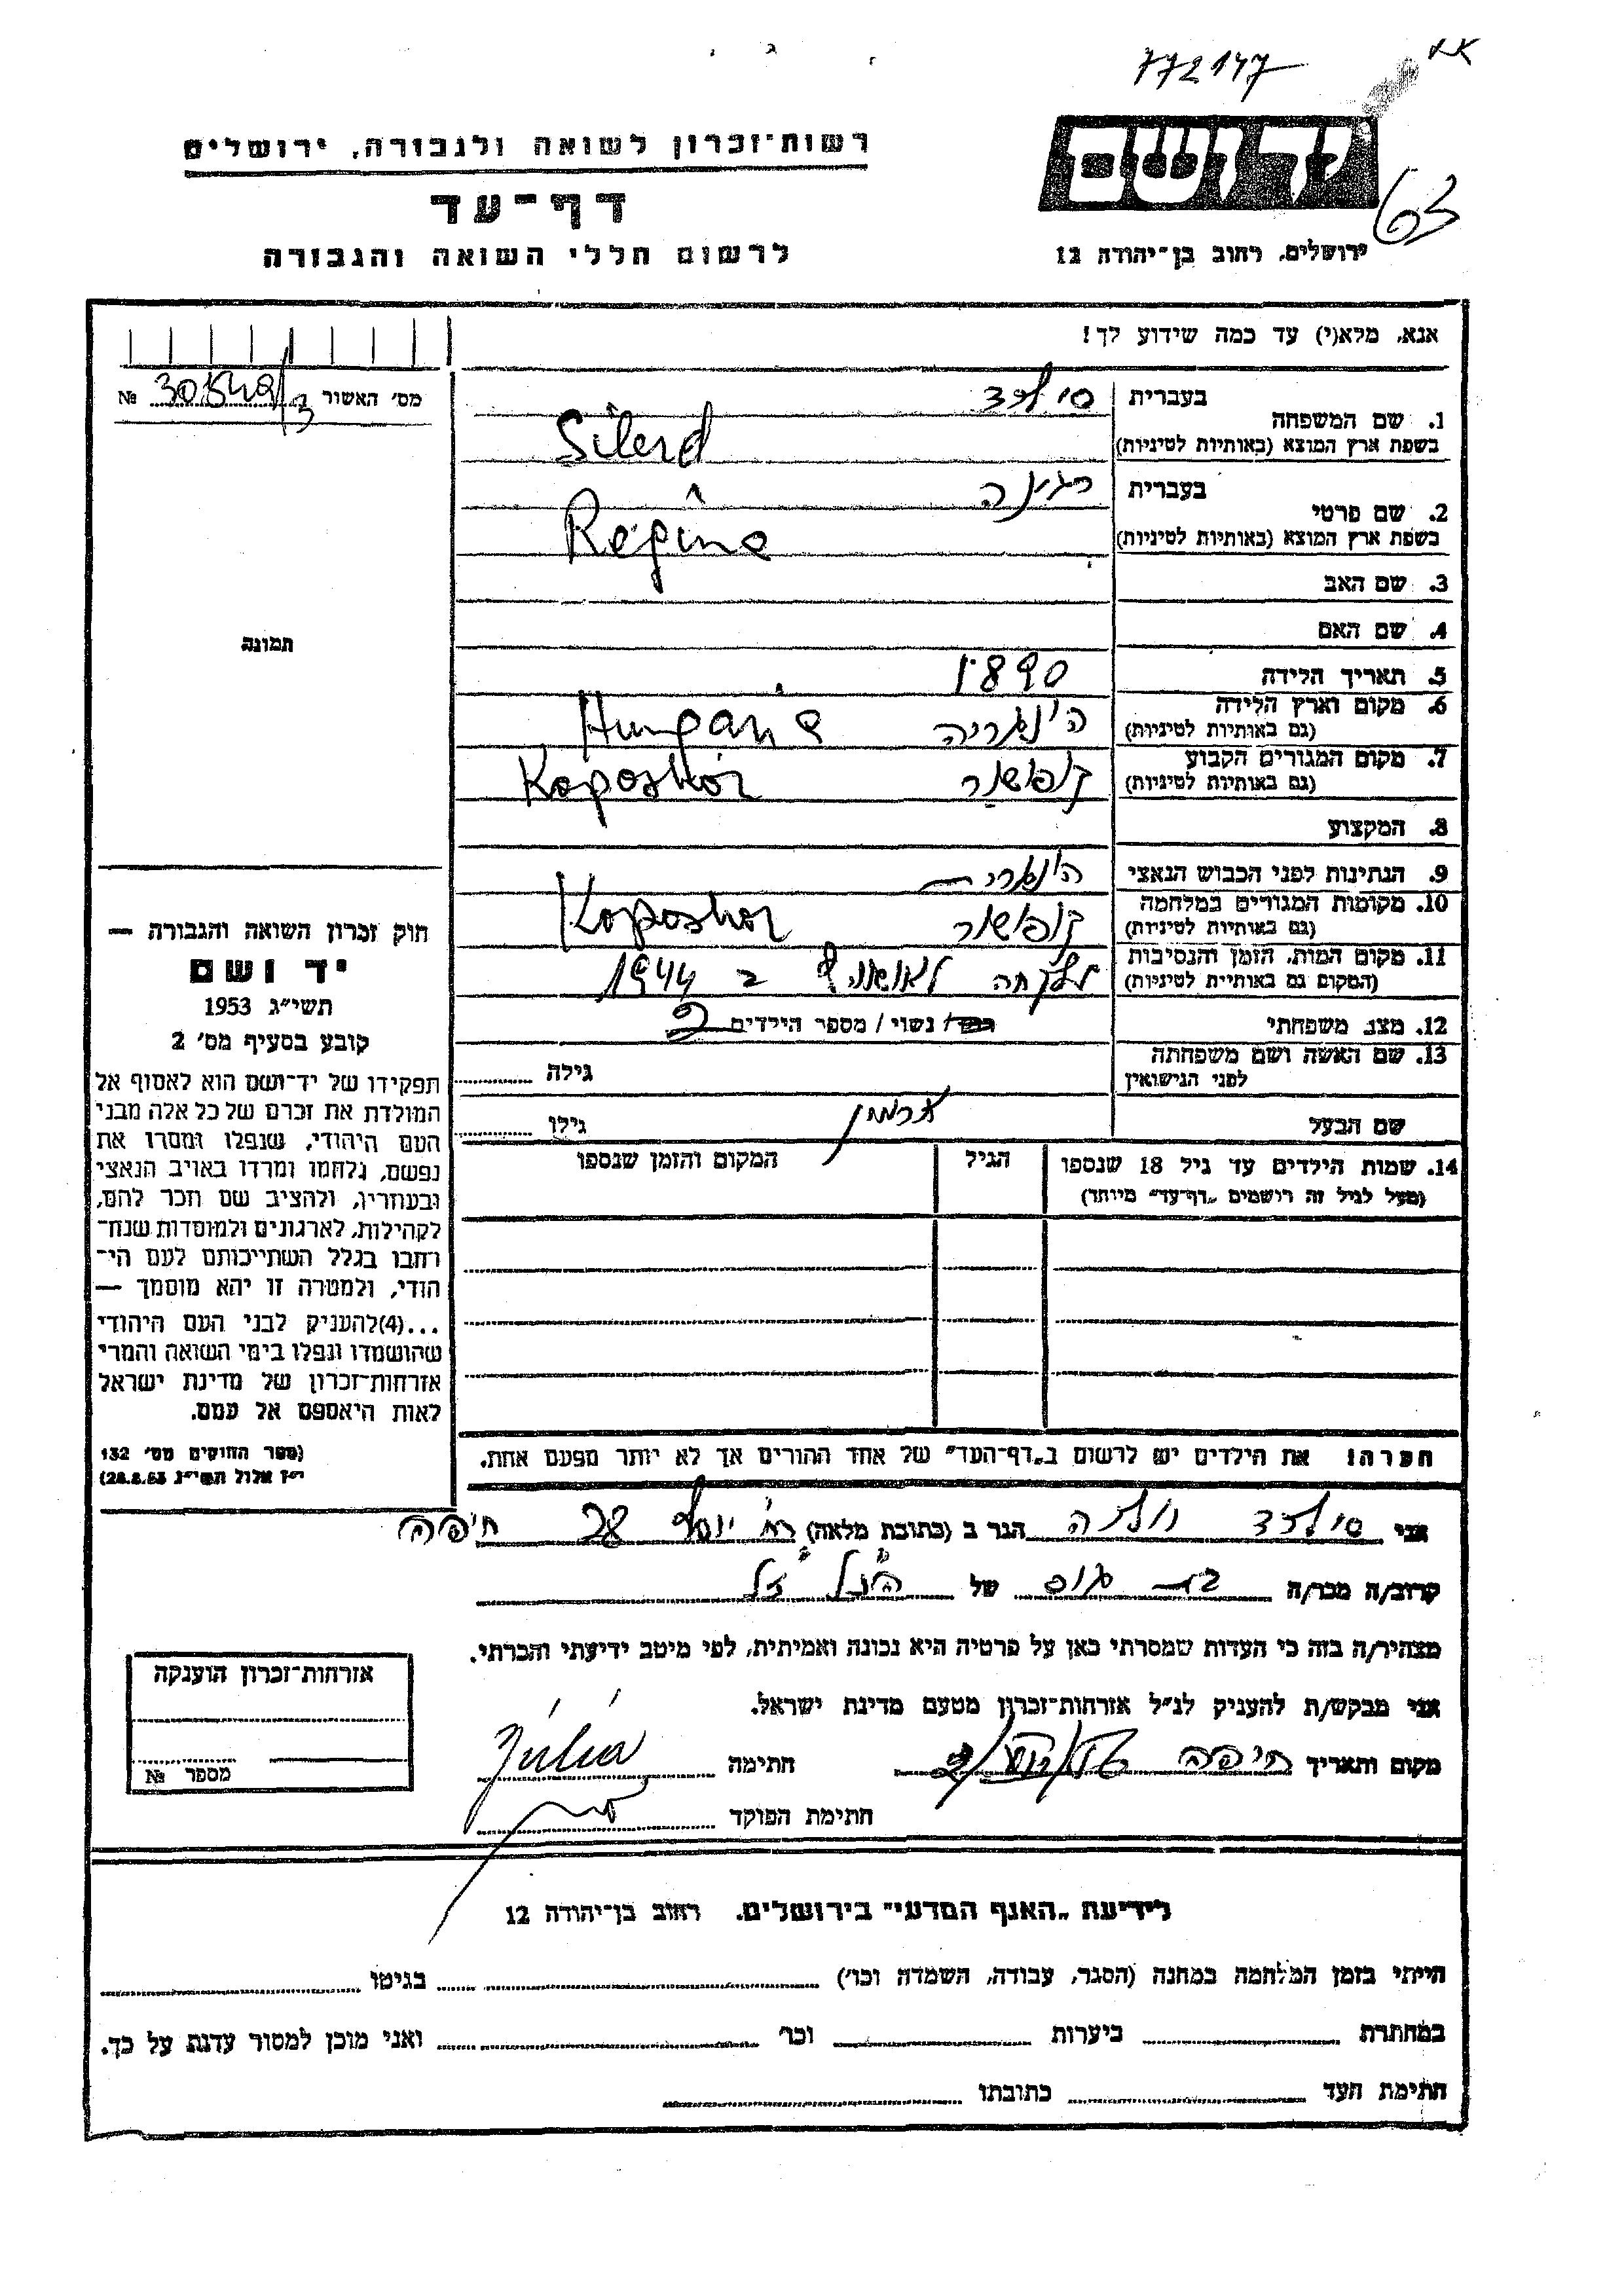 772147
63
יד ושם
רשות־זכרון לשואה ולגבורה, ירושלים
דף־עד
לרשום חללי השואה והגבורה
ירושלים, רחוב בן־יהודה 12
אנא, מלא(י) עד כמה שידוע לך!
מס׳ האשור №
1. שם המשפחה
בעברית
בשפת ארץ המוצא (באותיות לטיניות)
Silerd
2. שם פרטי
בעברית רגינה
בשפת ארץ המוצא (באותיות לטיניות)
Régina
3. שם האב
4. שם האם
תמונה
5. תאריך הלידה 1890
6. מקום וארץ הלידה
(גם באותיות לטיניות) הונגריה Hungária
7. מקום המגורים הקבוע
(גם באותיות לטיניות) קופשור Koposhór
8. המקצוע
9. הנתינות לפני הכבוש הנאצי
10. מקומות המגורים במלחמה
(גם באותיות לטיניות) קופשור Koposhor
11. מקום המות, הזמן והנסיבות
(המקום גם באותיית לטיניות) נלקחה לאושוויץ ב 1944
12. מצב משפחתי רוק/ נשוי / מספר הילדים 2
13. שם האשה ושם משפחתה
לפני הנישואין
גילה
שם הבעל ארמין גילו
14. שמות הילדים עד גיל 18 שנספו
(מעל לגיל זה רושמים „דף־עד״ מיוחד)
הגיל
המקום והזמן שנספו
חוק זכרון השואה והגבורה —
יד ושם
תשי״ג 1953
קובע בסעיף מס׳ 2
תפקידו של יד־ושם הוא לאסוף אל
המולדת את זכרם של כל אלה מבני
העם היהודי, שנפלו ומסרו את
נפשם, נלחמו ומרדו באויב הנאצי
ובעוזריו, ולהציב שם וזכר להם,
לקהילות, לארגונים ולמוסדות שנח־
רבו בגלל השתייכותם לעם הי־
הודי, ולמטרה זו יהא מוסמך —
...(4)להעניק לבני העם היהודי
שהושמדו ונפלו בימי השואה והמרי
אזרחות־זכרון של מדינת ישראל
לאות היאספם אל עמם.
(ספר החוקים מס׳ 132
י״ז אלול תשי״ג 28.8.53)
הערה! את הילדים יש לרשום ב„דף־העד״ של אחד ההורים אך לא יותר מפעם אחת.
אני הגר ב (כתובת מלאה) רח׳ יוסף 28 חיפה
קרוב/ה מכר/ה של הנ״ל
מצהיר/ה בזה כי העדות שמסרתי כאן על פרטיה היא נכונה ואמיתית, לפי מיטב ידיעתי והכרתי.
אני מבקש/ת להעניק לנ״ל אזרחות־זכרון מטעם מדינת ישראל.
מקום ותאריך חיפה חתימה Júlia
חתימת הפוקד
אזרחות־זכרון הוענקה
מספר №
לידיעת „האגף המדעי״ בירושלים, רחוב בן־יהודה 12
הייתי בזמן המלחמה במחנה (הסגר, עבודה, השמדה וכו׳) בגיטו
במחתרת ביערות וכו׳ ואני מוכן למסור עדות על כך.
חתימת העד כתובתו